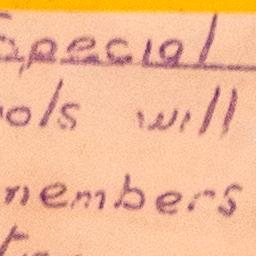 Special
ols will
nembers